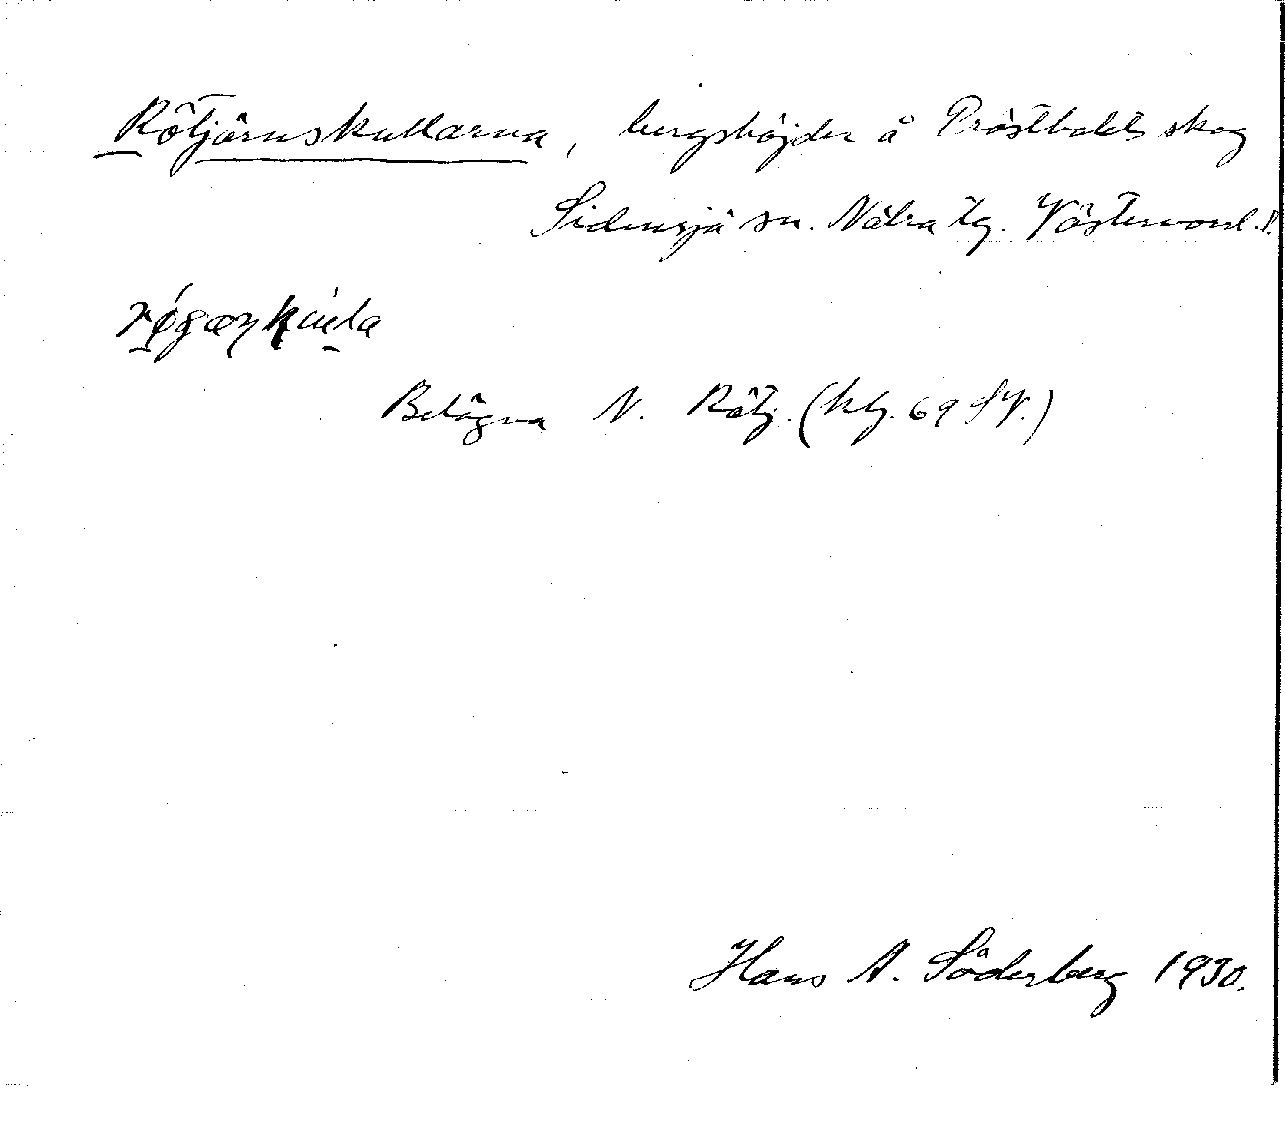 Rötjärnskullarna, bergshöjder å Prästbolets skog
Sidensjö sn. Nätra tg. Västernorrl. l.
Belägna N. Rötj. (kbl. 69 SV.)
Hans A. Söderberg 1930.